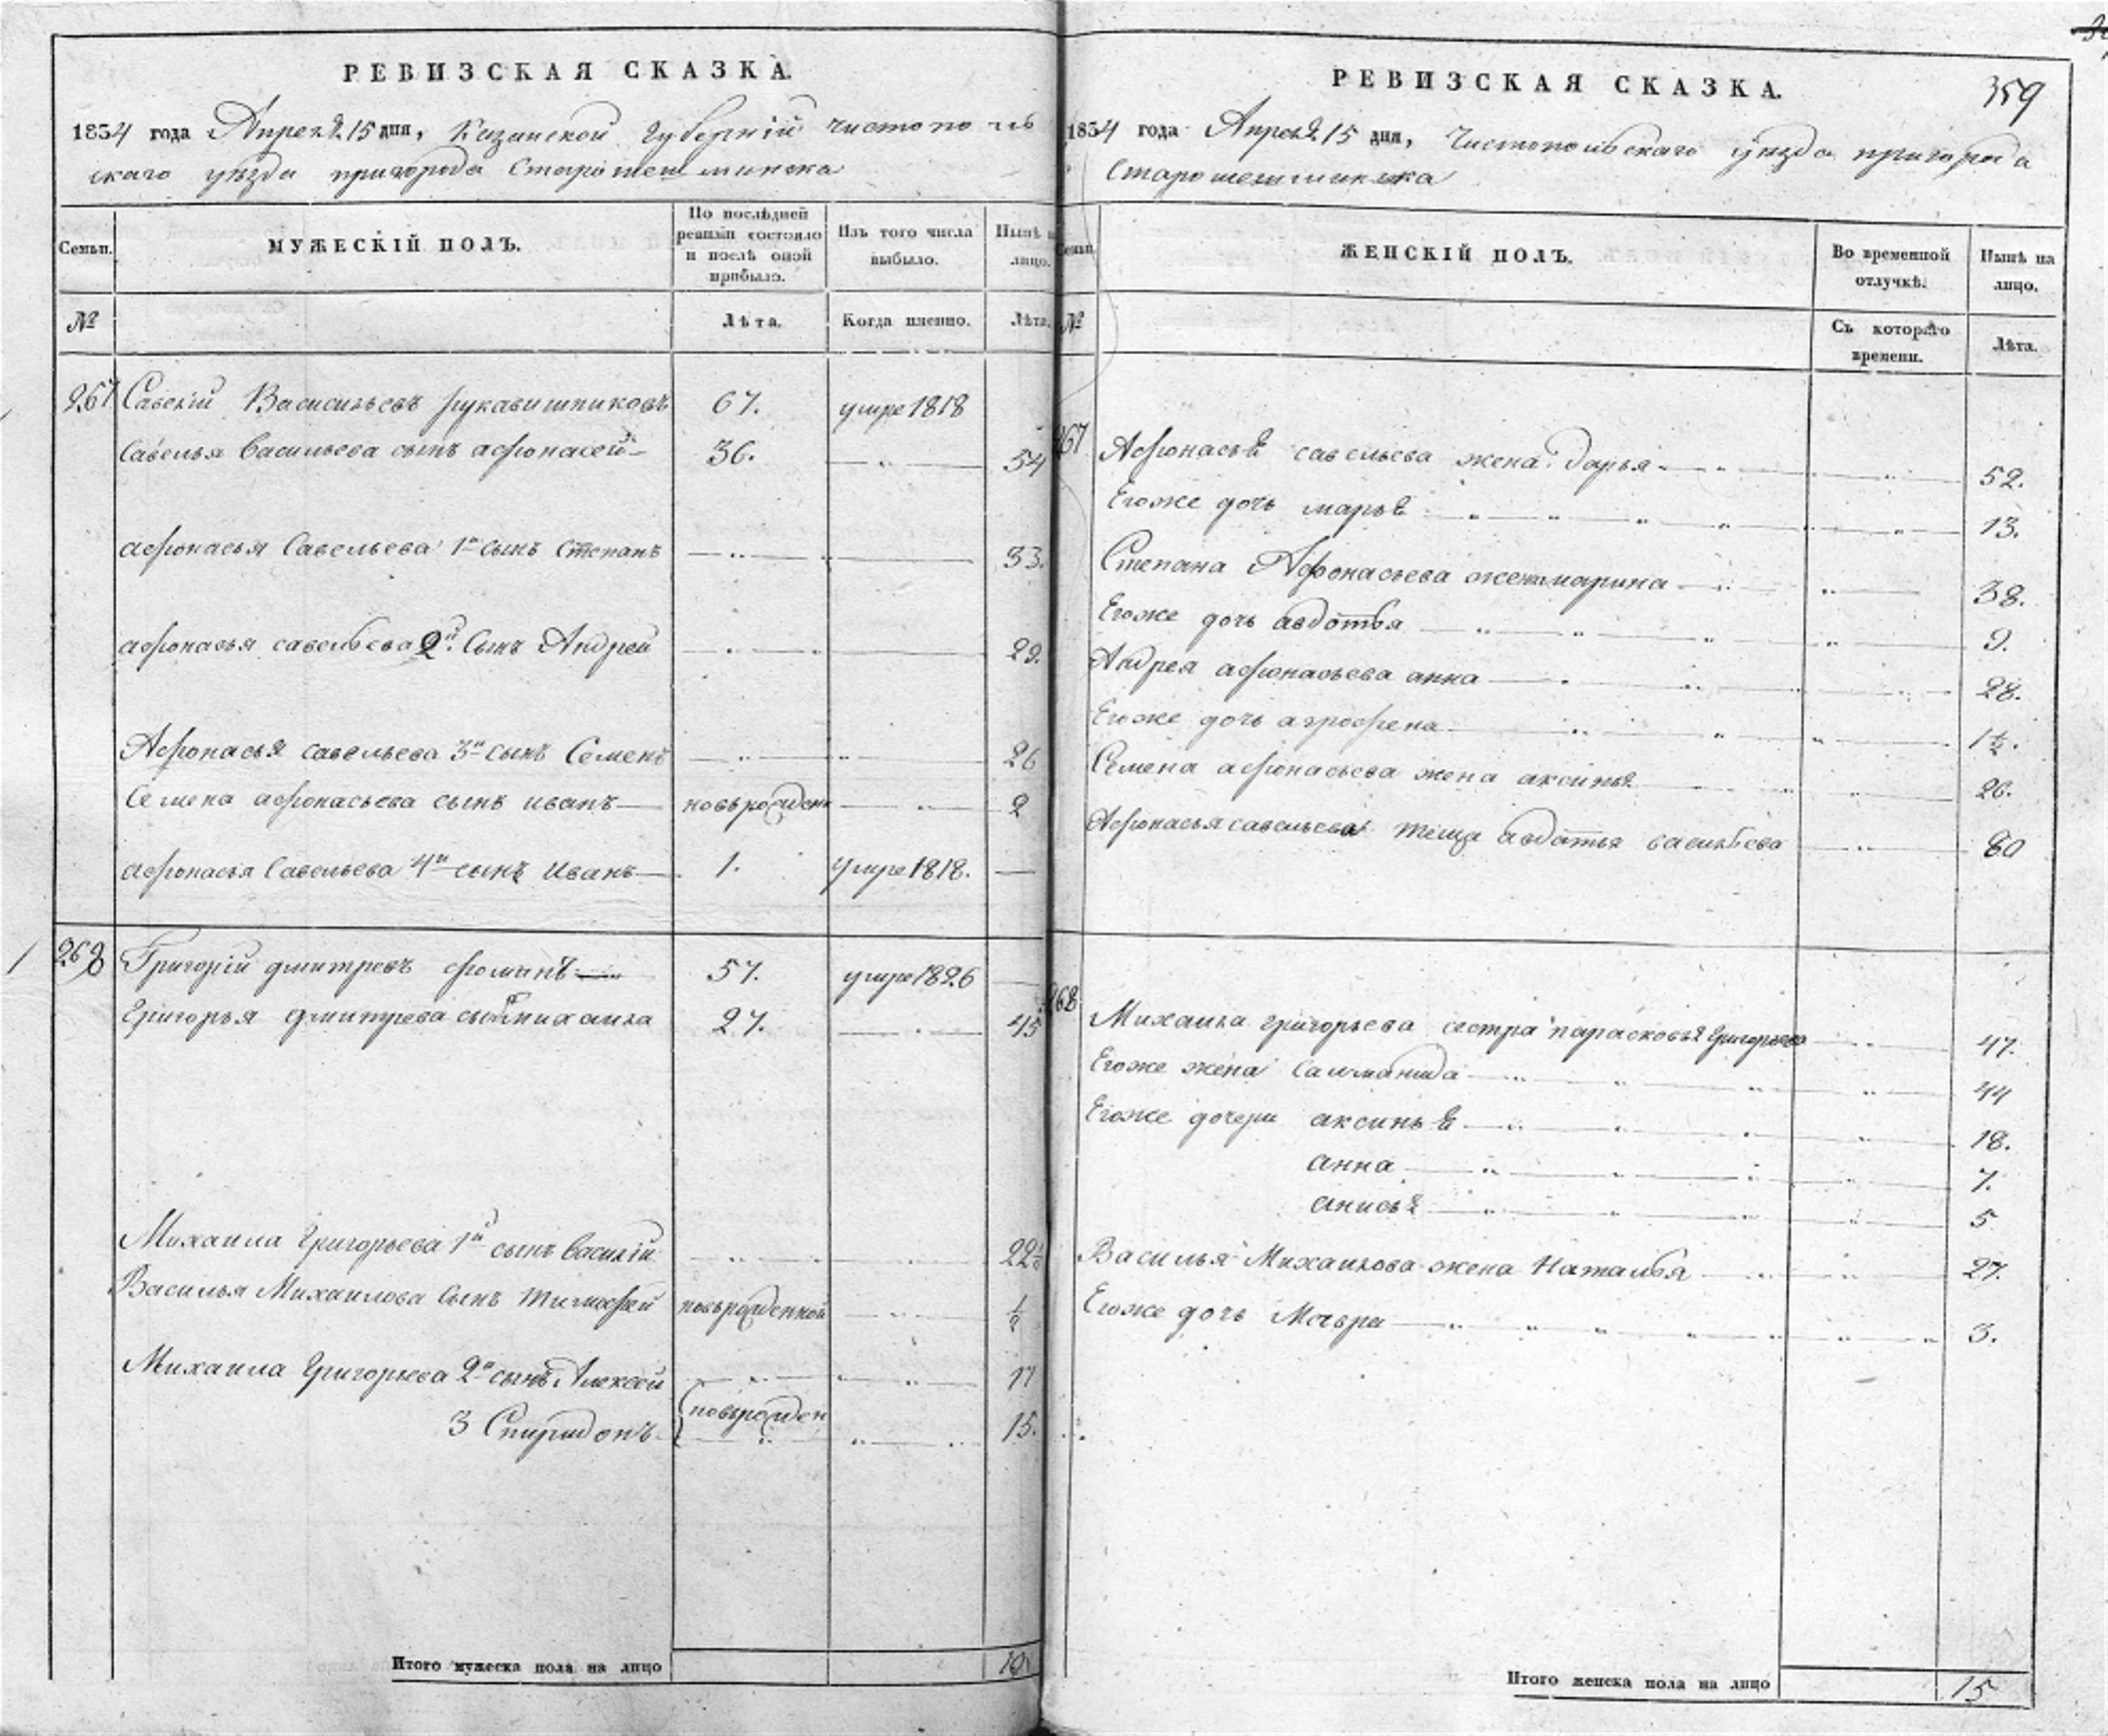 РЕВИЗСКАЯ СКАЗКА.
1834 года Апреля 15 дня, Казанской губерній Чистополь
скаго уѣзда пригорода Старошешминска
Семьи.
МУЖЕСКІЙ ПОЛЪ.
По послѣдней ревизіи состояло и послѣ оной прибыло.
Изъ того числа выбыло.
Нынѣ на лицо.
№
Лѣта.
Когда именно.
Лѣта.
267 Савелій Васильевъ рукавишниковъ 67. умре 1818
Савелья Васильева сынъ афонасей 36. 54
афонасья Савельева 1й сынъ Степанъ 33.
афонасья савельева 2й сынъ Андрей 29.
Афонасья савельева 3й сынъ Семенъ 26
Семена афонасьева сынъ иванъ новърожден 2
афонасья Савельева 4й сынъ Иванъ 1. умре 1818.
268 Григорій дмитревъ фоминъ 57. умре 1826
Григорья дмитрева сынъ михаила 27. 45
Михаила Григорьева 1й сынъ Василій 22½
Василья Михаилова сынъ тимофей новърожденной ½
Михаила Григорьева 2й сынъ Алексей 17
3 Спиридонъ новърожден 15.
Итого мужеска пола на лицо 10
РЕВИЗСКАЯ СКАЗКА.
359
1834 года Апреля 15 дня, Чистопольскаго уѣзда пригорода
Старошешминска
Семьи.
ЖЕНСКІЙ ПОЛЪ.
Во временной отлучкѣ.
Нынѣ на лицо.
№
Съ котораго времени.
Лѣта.
267 Афонасья савельева жена Дарья 52.
Егоже дочь марья 13.
Степана Афонасьева жена марина 38.
Егоже дочь авдотья 9.
Андрея афонасьева анна 28.
Егоже дочь агрофена 1½.
Семена афонасьева жена аксинья 26.
Афонасья савельева теща авдотья васильева 80
268 Михаила григорьева сестра парасковья Григорьева 47.
Егоже жена Саломанида 44
Егоже дочери аксинья 18.
анна 7.
анисья 5
Василья Михаилова жена Наталья 27.
Егоже дочь Мавра 3.
Итого женска пола на лицо 15